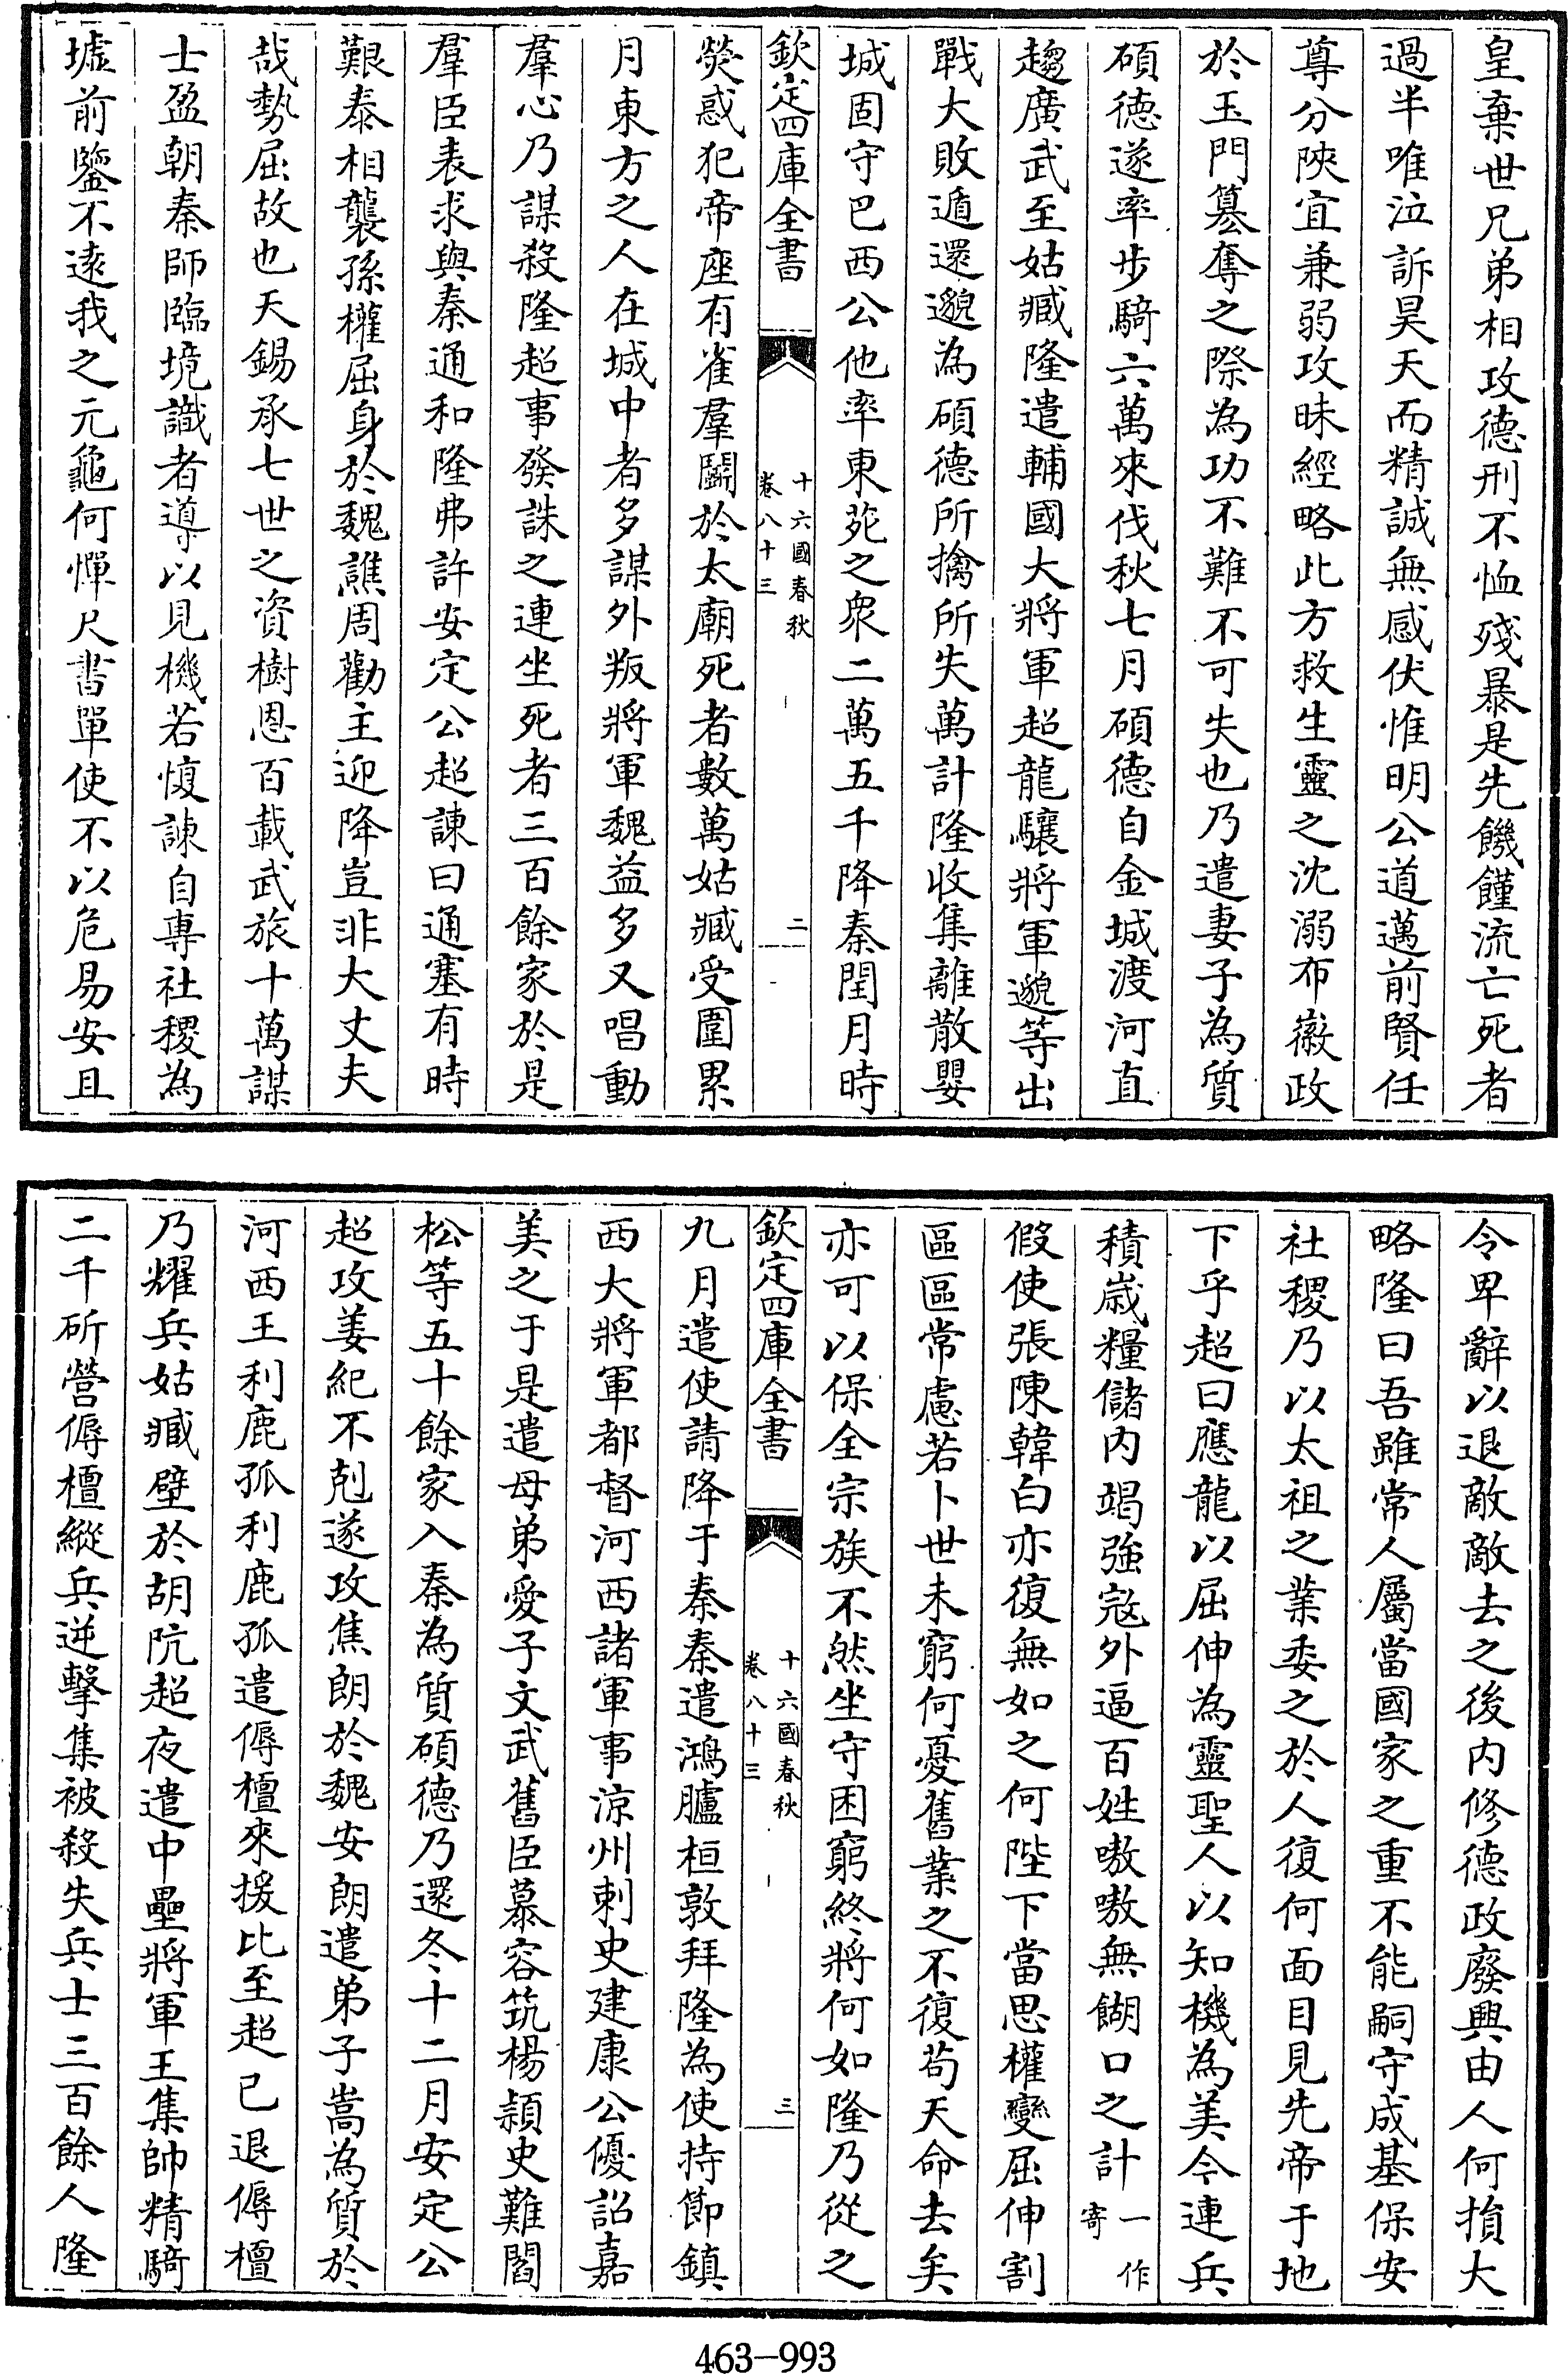 皇棄世兄弟相攻德刑不恤殘暴是先饑饉流亡死者
過半唯泣訴昊天而精誠無感伏惟明公道邁前賢任
尊分陜宜兼弱攻昧經略此方救生靈之沈溺布徽政
於玉門篡奪之際為功不難不可失也乃遣妻子為質
碩德遂率步騎六萬來伐秋七月碩德自金城渡河直
趨廣武至姑臧隆遣輔國大將軍超龍驤將軍邈等出
戰大敗遁還邈為碩德所擒所失萬計隆收集離散嬰
城固守巴西公他率東苑之眾二萬五千降秦閏月時
欽定四庫全書
十六國春秋
卷八十三
二
熒惑犯帝座有雀羣鬭於太廟死者數萬姑臧受圍累
月東方之人在城中者多謀外叛將軍魏益多又唱動
羣心乃謀殺隆超事發誅之連坐死者三百餘家於是
羣臣表求與秦通和隆弗許安定公超諫曰通塞有時
艱泰相襲孫權屈身於魏譙周勸主迎降豈非大丈夫
哉勢屈故也天錫承七世之資樹恩百載武旅十萬謀
士盈朝秦師臨境識者導以見機若愎諫自專社稷為
墟前鑒不遠我之元龜何憚尺書單使不以危易安且
令卑辭以退敵敵去之後內修德政廢興由人何損大
略隆曰吾雖常人屬當國家之重不能嗣守成基保安
社稷乃以太祖之業委之於人復何面目見先帝于地
下乎超曰應龍以屈伸為靈聖人以知機為美今連兵
積歲糧儲內竭強寇外逼百姓嗷嗷無餬口之計一作寄
假使張陳韓白亦復無如之何陛下當思權變屈伸割
區區常慮若卜世未窮何憂舊業之不復苟天命去矣
亦可以保全宗族不然坐守困窮終將何如隆乃從之
欽定四庫全書
十六國春秋
卷八十三
三
九月遣使請降于秦秦遣鴻臚桓敦拜隆為使持節鎮
西大將軍都督河西諸軍事涼州刺史建康公優詔嘉
美之于是遣母弟愛子文武舊臣慕容筑楊頴史難閻
松等五十餘家入秦為質碩德乃還冬十二月安定公
超攻姜紀不剋遂攻焦朗於魏安朗遣弟子嵩為質於
河西王利鹿孤利鹿孤遣傉檀來援比至超已退傉檀
乃耀兵姑臧壁於胡阬超夜遣中壘將軍王集帥精騎
二千斫營傉檀縱兵逆擊集被殺失兵士三百餘人隆
463-993